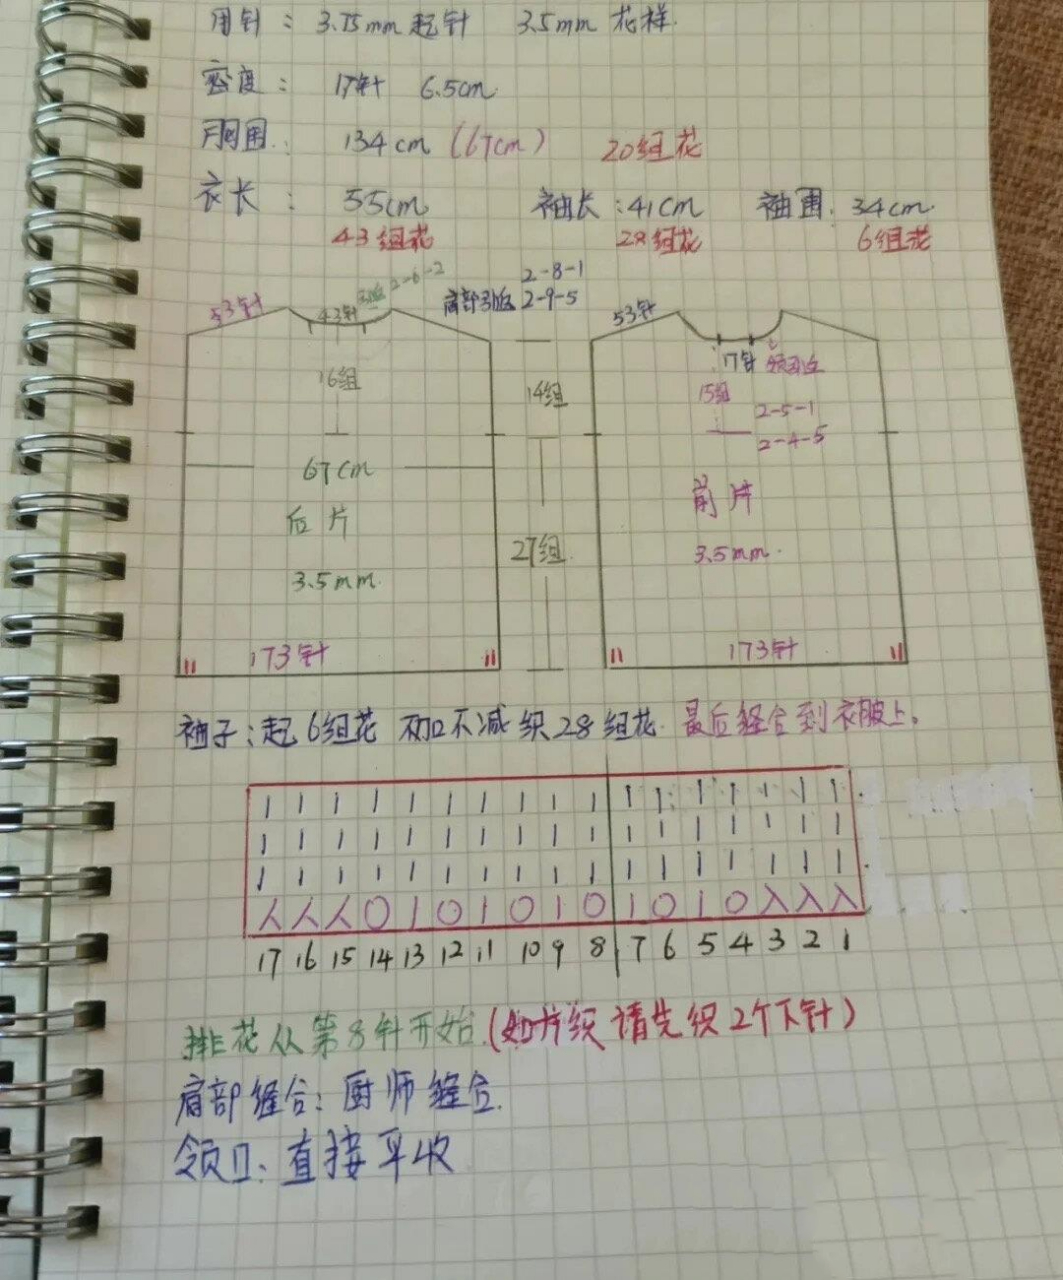 用针： 3.75mm 起针 3.5mm 花样.
密度： 17针 6.5cm
胸围： 134cm (67cm) 20组花
衣长： 55cm 袖长：41cm 袖围：34cm.
43组花 28组花 6组花
53针 43针 引返 2-6-2 肩部引返 2-8-1
2-9-5
53针
17针 领引返
16组 14组 15组 2-5-1
2-4-5
67cm
后片 前片
27组
3.5mm. 3.5mm.
173针 173针
袖子：起6组花 不加不减织28组花. 最后缝合到衣服上。
| | | | | | | | | | | | | | | | |
| | | | | | | | | | | | | | | | |
| | | | | | | | | | | | | | | | |
人 人 人 O | O | O | O | O | O 入 入 入
17 16 15 14 13 12 11 10 9 8 7 6 5 4 3 2 1
排花从第8针开始.(如片织请先织2个下针)
肩部缝合：厨师缝合.
领口：直接平收